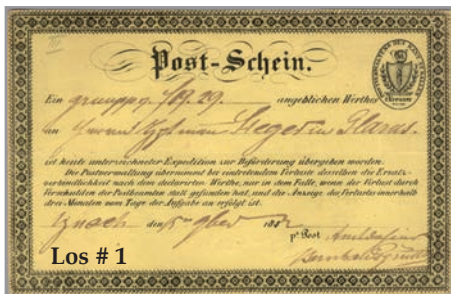 Post-Schein.
Ein gruppg. f 89. 29. angeblichen Werthes
an Herrn Steger in Glarus.
ist heute unterzeichneter Expedition zur Beförderung übergeben worden.
Die Postverwaltung übernimmt bei eintretendem Verluste desselben die Ersatz-
verbindlichkeit nach dem declarirten Werthe, nur in dem Falle, wenn der Verlust durch
Verschulden der Postbeamten statt gefunden hat, und die Anzeige des Verlustes innerhalb
drei Monaten vom Tage der Aufgabe an erfolgt ist.
Uznach den 5ten 9ber 184
pr. Post
Los # 1